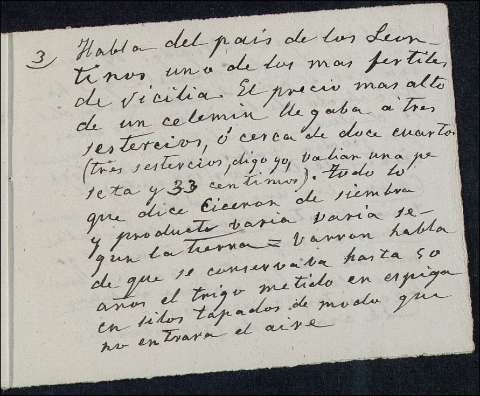 3) Habla del país de los Leon-
tinos uno de los mas fertiles
de Sicilia. El precio mas alto
de un celemin llegaba á tres
sestercios, ó cerca de doce cuartos
(tres sestercios, digo yo, valian una pe
seta y 33 centimos). todo lo
que dice Ciceron de siembra
y producto varia varía se-
gun la tierra = Varron habla
de que se conservaba hasta 50
años el trigo metido en espiga
en silos tapados de modo que
no entrara el aire